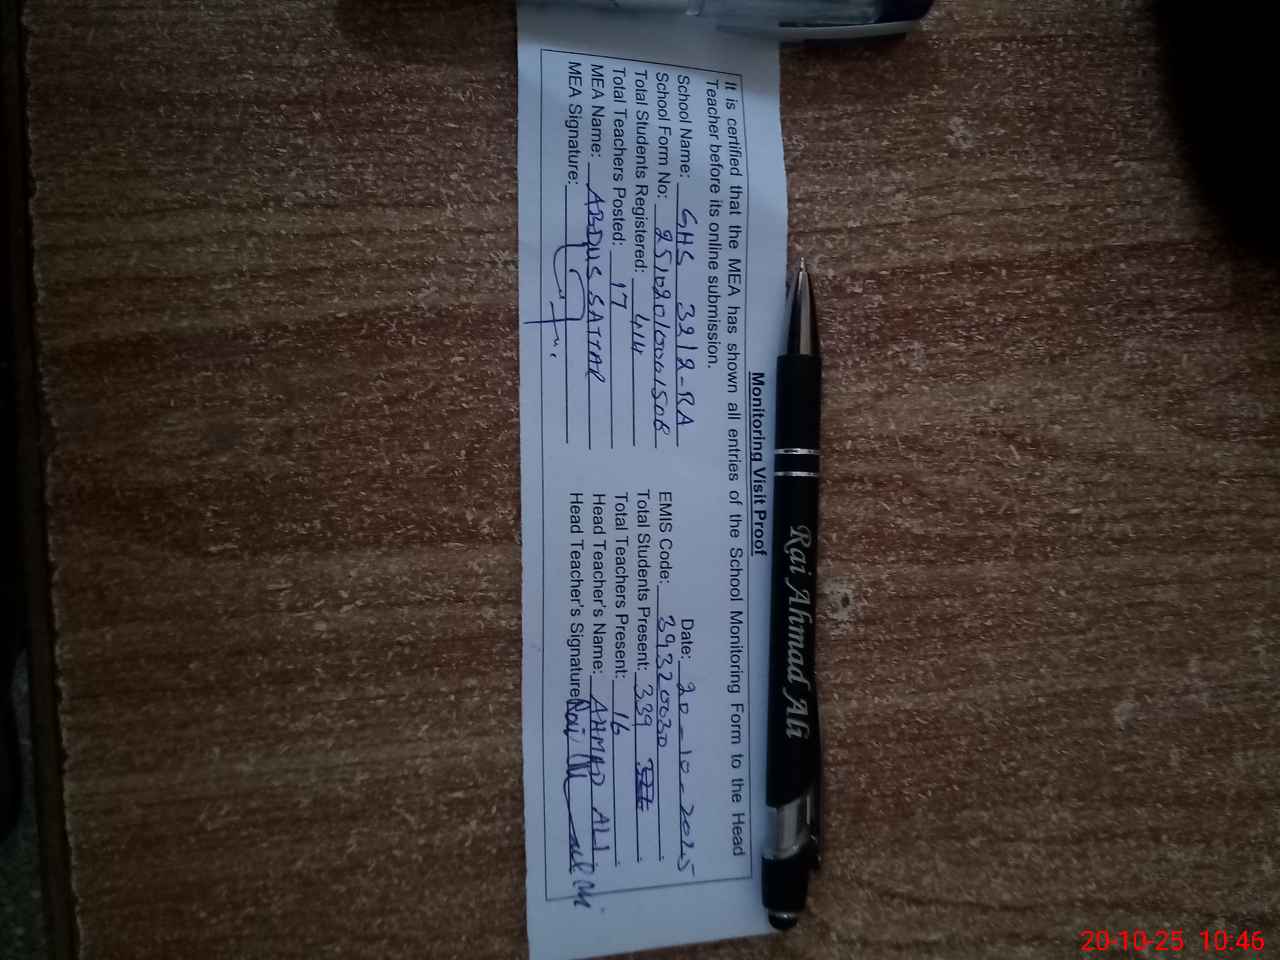 Monitoring Visit Proof
It is certified that the MEA has shown all entries of the School Monitoring Form to the Head
Teacher before its online submission.
Date: 20-10-2025
School Name: GHS 32/2-RA
EMIS Code: 39320030
School Form No:
Total Students Registered: 414
Total Students Present: 339
Total Teachers Posted: 17
Total Teachers Present: 16
MEA Name: ABDUS SATTAR
Head Teacher's Name: AHMAD ALI
MEA Signature:
Head Teacher's Signature
Rai Ahmad Ali
20-10-25 10:46